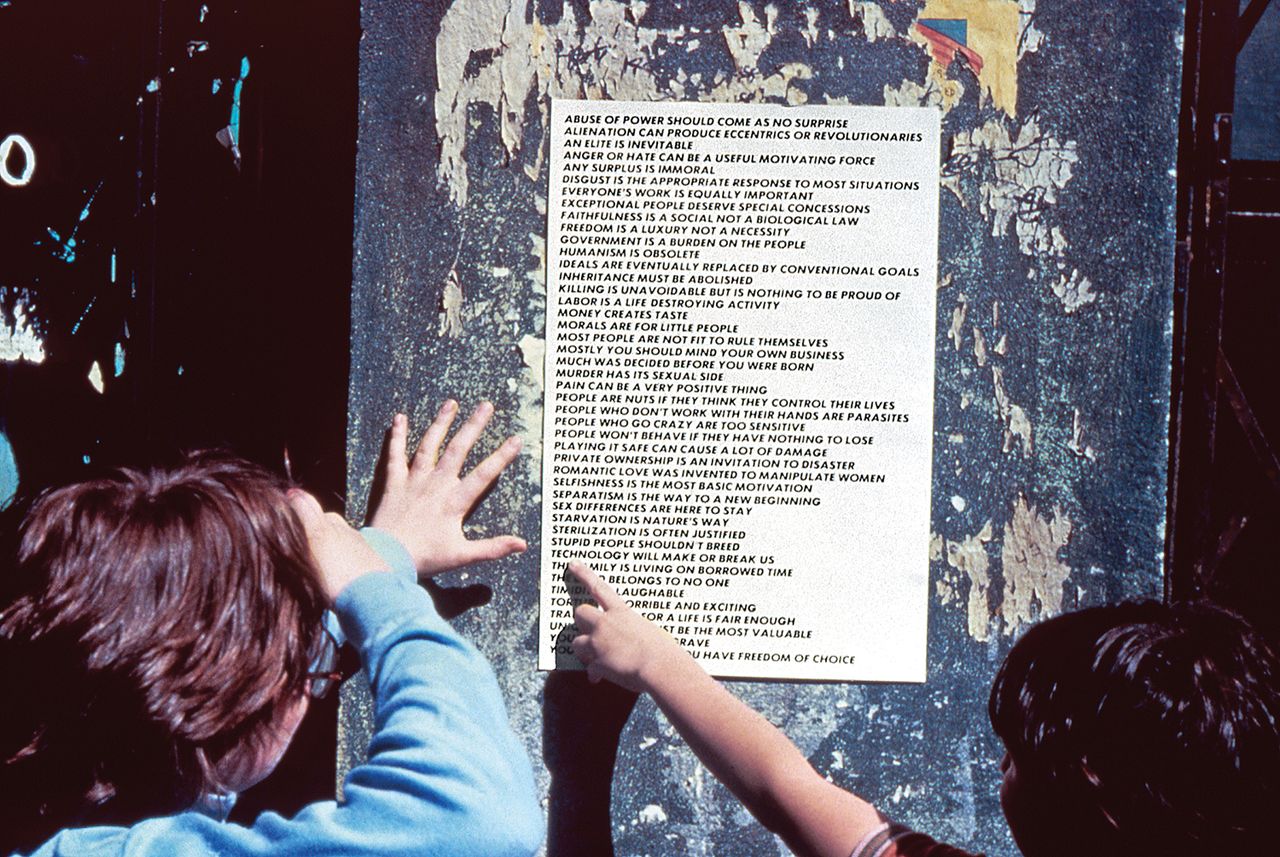 ABUSE OF POWER SHOULD COME AS NO SURPRISE
ALIENATION CAN PRODUCE ECCENTRICS OR REVOLUTIONARIES
AN ELITE IS INEVITABLE
ANGER OR HATE CAN BE A USEFUL MOTIVATING FORCE
ANY SURPLUS IS IMMORAL
DISGUST IS THE APPROPRIATE RESPONSE TO MOST SITUATIONS
EVERYONE'S WORK IS EQUALLY IMPORTANT
EXCEPTIONAL PEOPLE DESERVE SPECIAL CONCESSIONS
FAITHFULNESS IS A SOCIAL NOT A BIOLOGICAL LAW
FREEDOM IS A LUXURY NOT A NECESSITY
GOVERNMENT IS A BURDEN ON THE PEOPLE
HUMANISM IS OBSOLETE
IDEALS ARE EVENTUALLY REPLACED BY CONVENTIONAL GOALS
INHERITANCE MUST BE ABOLISHED
KILLING IS UNAVOIDABLE BUT IS NOTHING TO BE PROUD OF
LABOR IS A LIFE DESTROYING ACTIVITY
MONEY CREATES TASTE
MORALS ARE FOR LITTLE PEOPLE
MOST PEOPLE ARE NOT FIT TO RULE THEMSELVES
MOSTLY YOU SHOULD MIND YOUR OWN BUSINESS
MUCH WAS DECIDED BEFORE YOU WERE BORN
MURDER HAS ITS SEXUAL SIDE
PAIN CAN BE A VERY POSITIVE THING
PEOPLE ARE NUTS IF THEY THINK THEY CONTROL THEIR LIVES
PEOPLE WHO DON'T WORK WITH THEIR HANDS ARE PARASITES
PEOPLE WHO GO CRAZY ARE TOO SENSITIVE
PEOPLE WON'T BEHAVE IF THEY HAVE NOTHING TO LOSE
PLAYING IT SAFE CAN CAUSE A LOT OF DAMAGE
PRIVATE OWNERSHIP IS AN INVITATION TO DISASTER
ROMANTIC LOVE WAS INVENTED TO MANIPULATE WOMEN
SELFISHNESS IS THE MOST BASIC MOTIVATION
SEPARATISM IS THE WAY TO A NEW BEGINNING
SEX DIFFERENCES ARE HERE TO STAY
STARVATION IS NATURE'S WAY
STERILIZATION IS OFTEN JUSTIFIED
STUPID PEOPLE SHOULDN'T BREED
TECHNOLOGY WILL MAKE OR BREAK US
THE FAMILY IS LIVING ON BORROWED TIME
THE BELONGS TO NO ONE
LAUGHABLE
HORRIBLE AND EXCITING
FOR A LIFE IS FAIR ENOUGH
BE THE MOST VALUABLE
YOU HAVE FREEDOM OF CHOICE